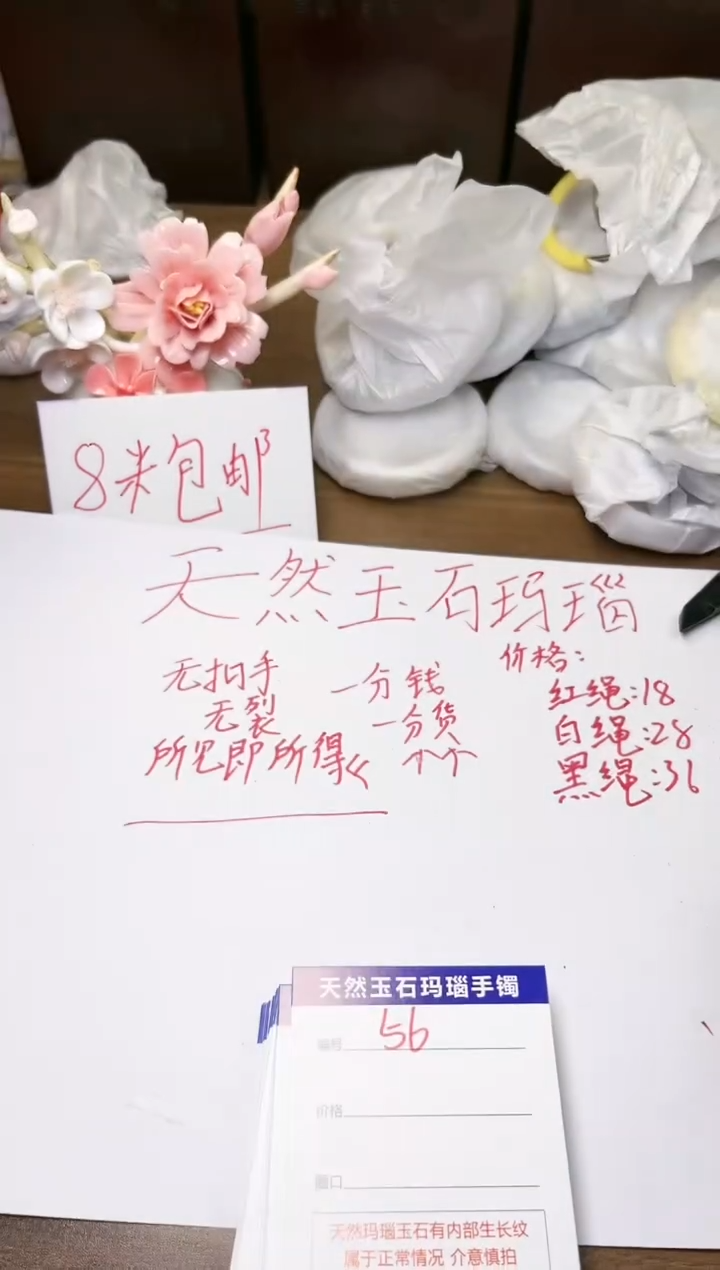 8米包邮
天然玉石玛瑙
无扣手
无裂
所见即所得
一分钱
一分货
价格:
红绳:18
白绳:28
黑绳:36
天然玉石玛瑙手镯
编号 56
价格
圈口
天然玛瑙玉石有内部生长纹
属于正常情况 介意慎拍